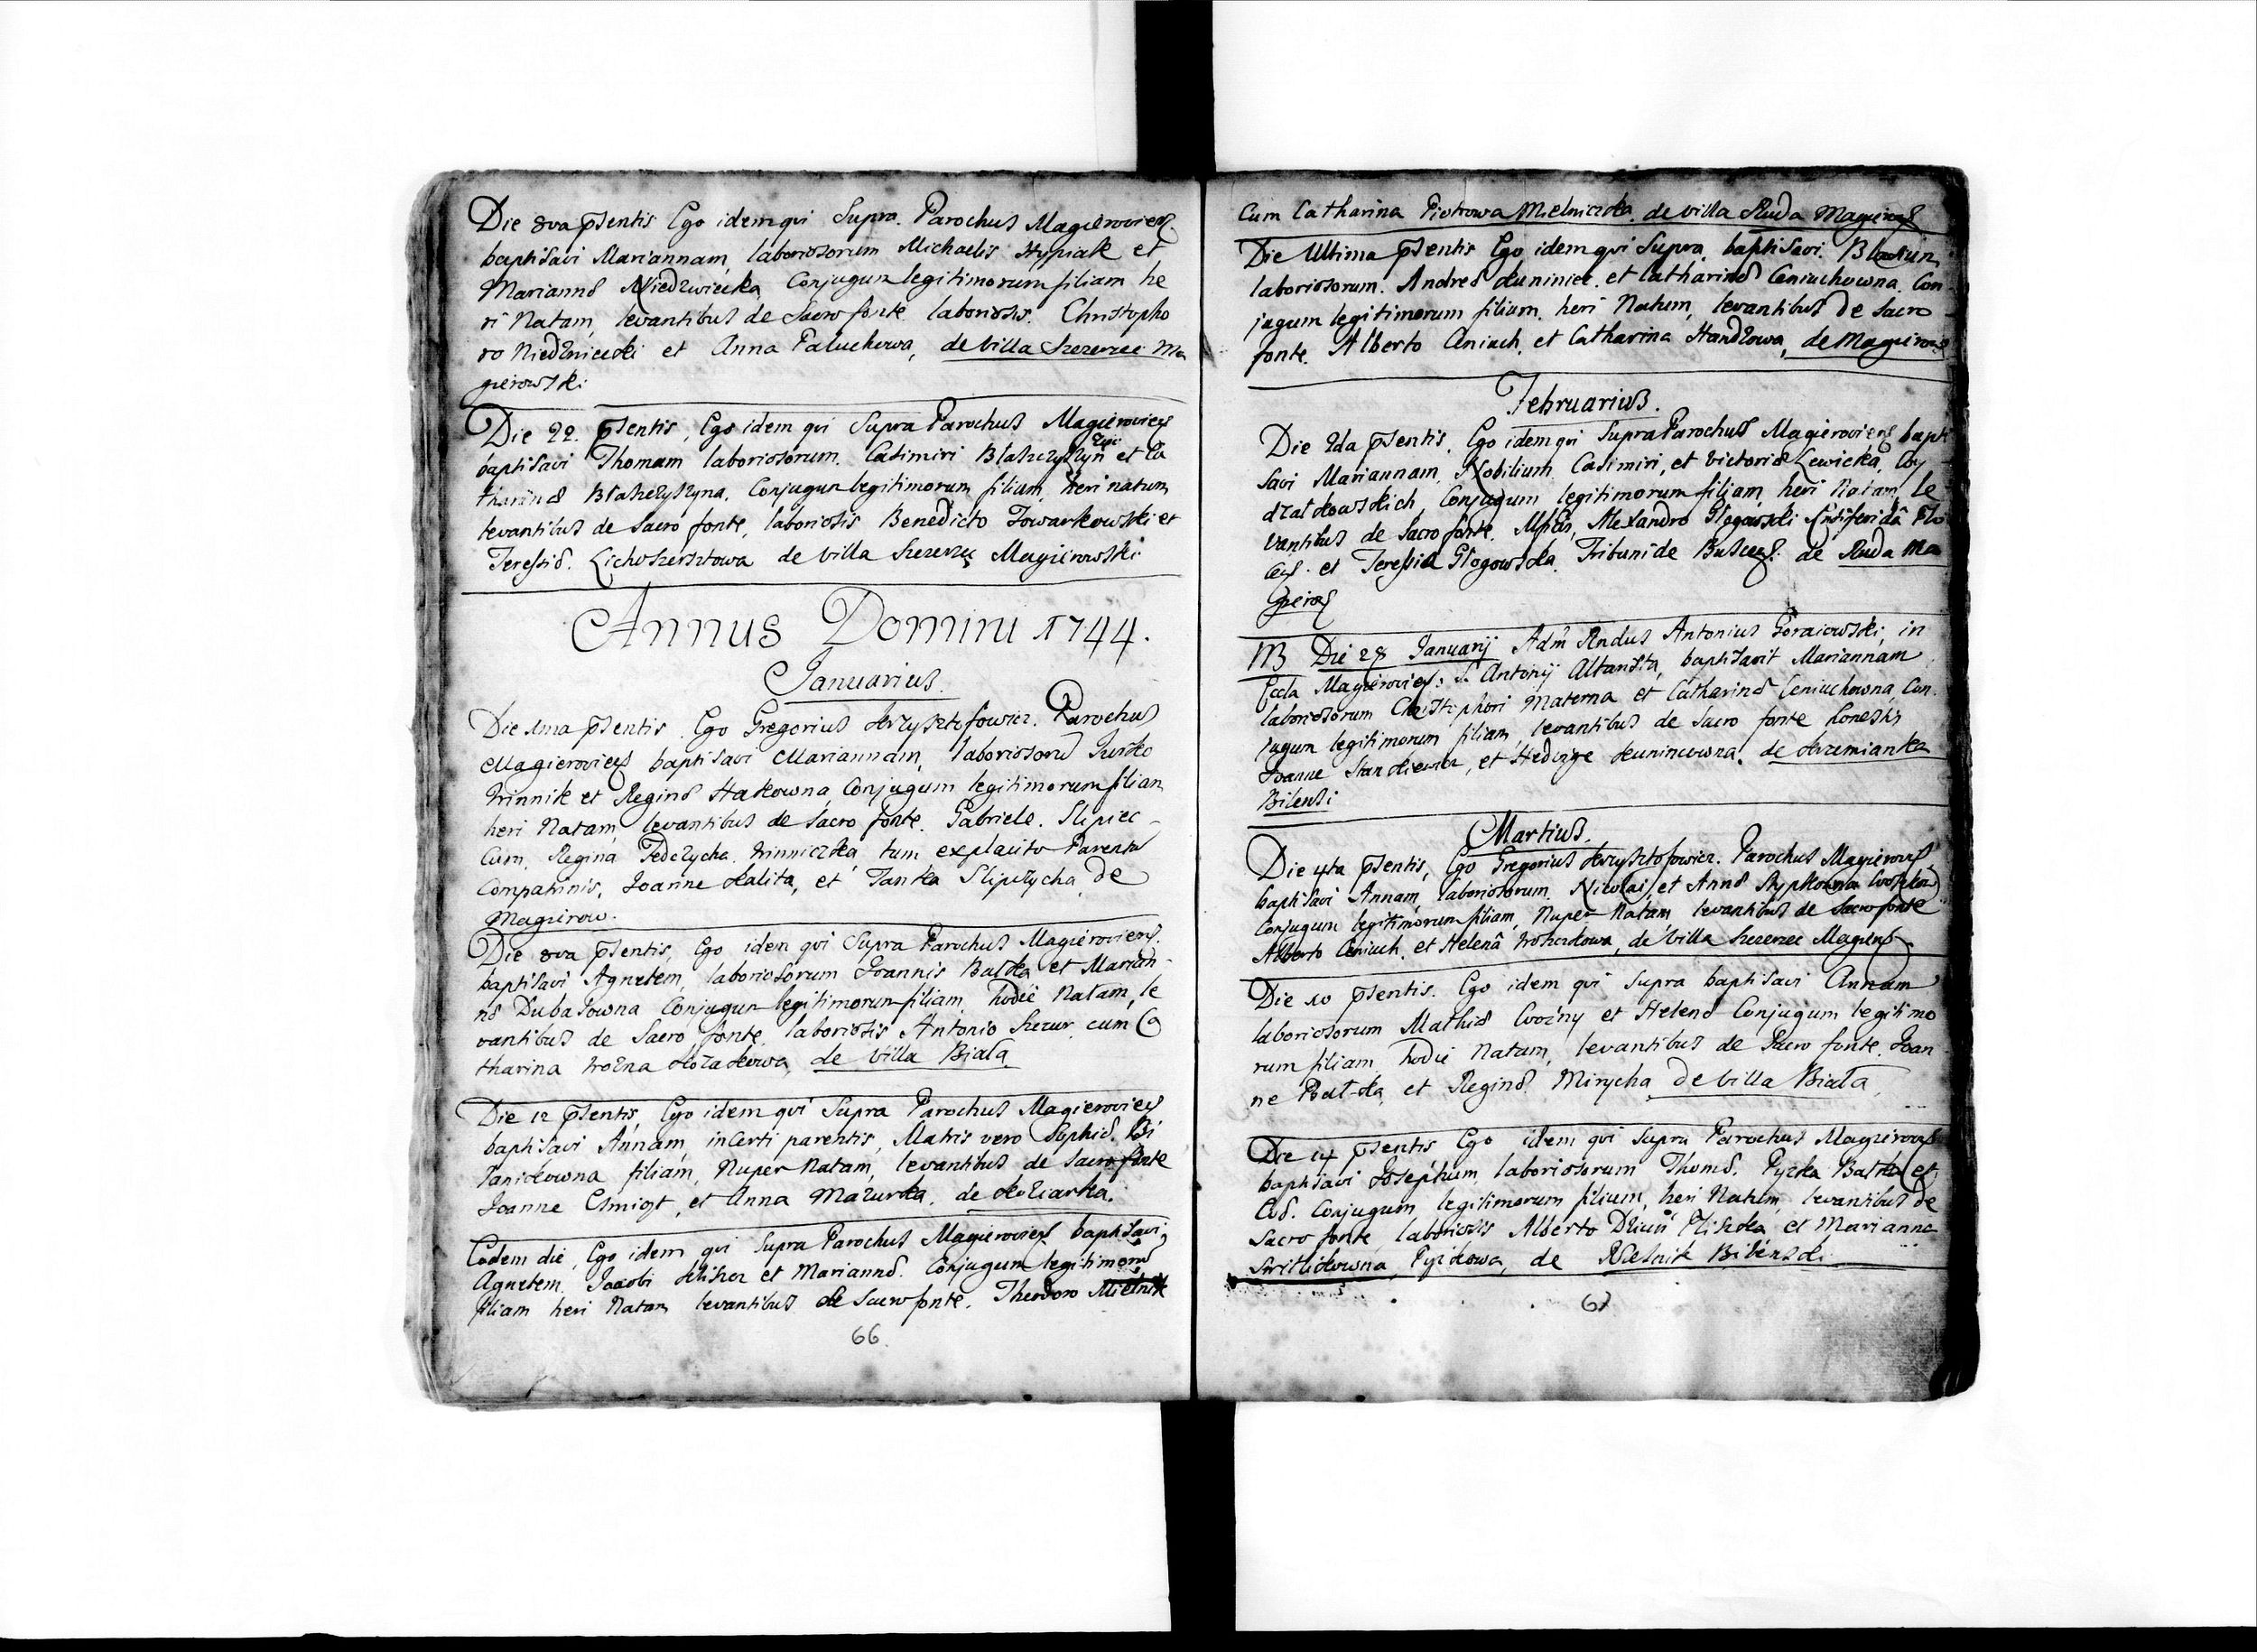 Die 8va pSentis Ego idem qui Supra Parochus Magieroviens.
baptisavi Mariannam, laboriosorum Michaelis Hypiak et
Mariannæ Niedzwiecka Conjugum legitimorum filiam he
ri Natam, levantibus de Sacro fonte laboriosis. Christopho
ro Niedzwiecki et Anna Paluchowa, de villa Szczerzec Ma
gierowski
Die 22. pSentis, Ego idem qui Supra Parochus Magieroviens
baptisavi Thomam laboriosorum. Casimiri et Ca
tharinæ Conjugum legitimorum filium, heri natum
levantibus de Sacro fonte, laboriosis Benedicto Towarkowski et
Teressiæ. de villa Szczerzec Magierowski
Annus Domini 1744.
Januarius.
Die 1ma pSentis Ego Gregorius Krzysztofowicz. Parochus
Magieroviens baptisavi Mariannam, laboriosorū Jurko
Winnik et Reginæ Hakowna Conjugum legitimorum filiam
heri Natam levantibus de Sacro fonte. Gabriele. Slipiec
Cum Regina Fedczycha Winniczka tum explacito Parentū
Compatrinis, Joanne Kalita, et Janka Slipczycha de
Magierow.
Die 8va pSentis, Ego idem qui Supra Parochus Magieroviens.
baptisavi Agnetem, laboriosorum Joannis Batka et Marian
næ Dubasowna Conjugum legitimorum filiam hodie Natam, le
vantibus de Sacro fonte laboriosis Antonio Szczur cum Ca
tharina Wozna Kozakowa, de Villa Biała
Die 12 pSentis, Ego idem qui Supra Parochus Magieroviens
baptisavi Annam, incerti parentis, Matris vero Sophiæ. Bi
filiam, Nuper Natam, levantibus de Sacro fonte
Joanne et Anna Mazurka. de
Eodem die, Ego idem qui Supra Parochus Magieroviens baptisavi
Agnetem, Jacobi et Mariannæ. Conjugum legitimorū
filiam heri Natam levantibus de Sacro fonte. Theodoro Mielnik
66
Cum Catharina Piotrowa Mielniczka de villa Ruda Magierows
Die Ultima pSentis Ego idem qui Supra baptisavi.
laboriosorum. Andreæ Kuniniec. et Catharinæ Ceniuchowna Con
jugum legitimorum filium. heri Natum, levantibus de Sacro
fonte. Alberto Ceniuch, et Catharina Handzowa, de Magierow
Februarius.
Die 2da pSentis, Ego idem qui Supra Parochus Magieroviens bapti
savi Mariannam, Nobilium Casimiri, et Victoriæ Lewicka,
Conjugum legitimorum filiam heri Natam, le
vantibus de Sacro fonte. Alexandro Głogowski
et Teressia Głogowska. Tribuni de de Ruda Ma
gierow
NB Die 28 Januarij Adm Rndus Antonius Goraiowski, in
Eccla Magieroviens: S. Antonij Altarista, baptisavit Mariannam
laboriosorum Christophori Materna et Catharinæ Ceniuchowna Con
jugum legitimorum filiam, levantibus de Sacro fonte honestis
Joanne Stankiewicz, et Hedvige Kunincowna. de Krzemianka
Bilenski
Martius.
Die 4ta pSentis, Ego Gregorius Krzysztofowicz. Parochus Magierovs
baptisavi Annam, laboriosorum Nicolai, et Annæ
Conjugum legitimorum filiam, Nuper Natam levantibus de Sacro fonte
Alberto Ceniuch. et Helenā de villa Szczerzec Magiers
Die 10 pSentis. Ego idem qui Supra baptisavi Annam
laboriosorum Mathiæ Woźny et Helenæ Conjugum legitimo
rum filiam, hodie Natam, levantibus de Sacro fonte. Joan
ne Batka et Reginæ Mirycha de villa Biała
Die 14 pSentis Ego idem qui Supra Parochus Magierovs
baptisavi Josephum, laboriosorum Thomæ. Pyzka Batka et
Evæ. Conjugum legitimorum filium, heri Natum, levantibus de
Sacro fonte laboriosis Alberto et Marianna
Pyzkowa, de Bilenski
67